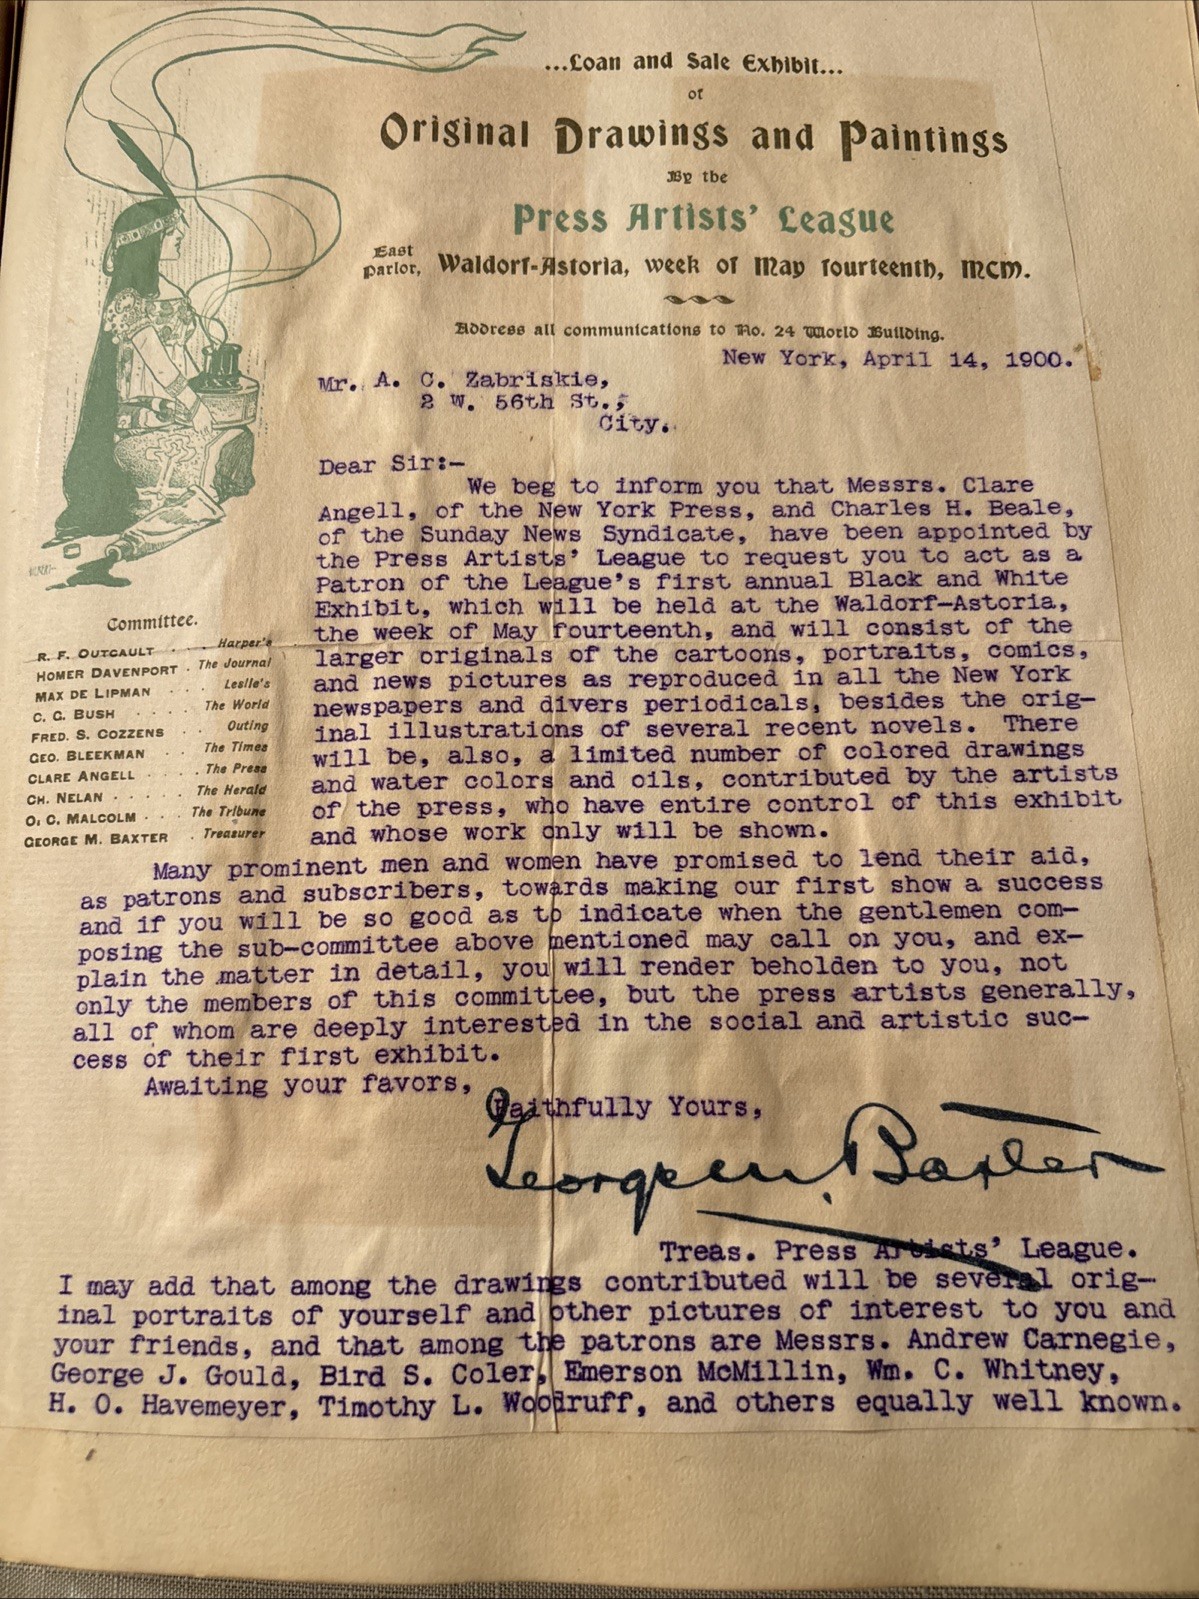 ...Loan and Sale Exhibit...
of
Original Drawings and Paintings
By the
Press Artists' League
East Parlor, Waldorf-Astoria, week of May fourteenth, MCM.
Address all communications to No. 24 World Building.
New York, April 14, 1900.
Mr. A. C. Zabriskie,
2 W. 56th St.,
City.
Dear Sir:-
We beg to inform you that Messrs. Clare
Angell, of the New York Press, and Charles H. Beale,
of the Sunday News Syndicate, have been appointed by
the Press Artists' League to request you to act as a
Patron of the League's first annual Black and White
Exhibit, which will be held at the Waldorf-Astoria,
the week of May fourteenth, and will consist of the
larger originals of the cartoons, portraits, comics,
and news pictures as reproduced in all the New York
newspapers and divers periodicals, besides the orig-
inal illustrations of several recent novels. There
will be, also, a limited number of colored drawings
and water colors and oils, contributed by the artists
of the press, who have entire control of this exhibit
and whose work only will be shown.
Committee.
R. F. OUTCAULT . . . Harper's
HOMER DAVENPORT . The Journal
MAX DE LIPMAN . . . Leslie's
C. G. BUSH . . . . The World
FRED. S. COZZENS . . Outing
GEO. BLEEKMAN . . The Times
CLARE ANGELL . . . . The Press
CH. NELAN . . . . . The Herald
O. C. MALCOLM . . . The Tribune
GEORGE M. BAXTER . Treasurer
Many prominent men and women have promised to lend their aid,
as patrons and subscribers, towards making our first show a success
and if you will be so good as to indicate when the gentlemen com-
posing the sub-committee above mentioned may call on you, and ex-
plain the matter in detail, you will render beholden to you, not
only the members of this committee, but the press artists generally,
all of whom are deeply interested in the social and artistic suc-
cess of their first exhibit.
Awaiting your favors,
Faithfully Yours,
George M. Baxter
Treas. Press Artists' League.
I may add that among the drawings contributed will be several orig-
inal portraits of yourself and other pictures of interest to you and
your friends, and that among the patrons are Messrs. Andrew Carnegie,
George J. Gould, Bird S. Coler, Emerson McMillin, Wm. C. Whitney,
H. O. Havemeyer, Timothy L. Woodruff, and others equally well known.